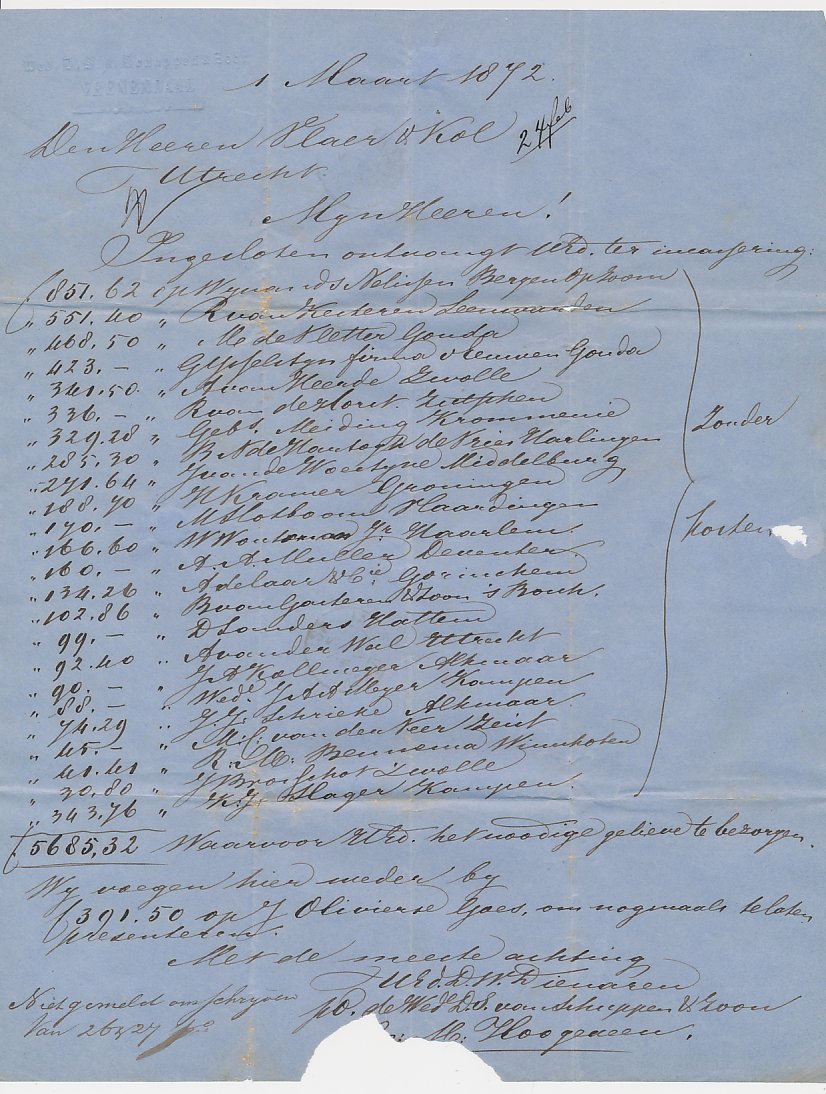 VEENENDAAL
1 Maart 1872.
24 feb
Den Heeren Vlaer & Kol
Utrecht.
Myn Heeren!
Ingesloten ontvangt UEd. ter incasseering:
f 851.62 op Wynands Nelissen Bergen op Zoom
„ 551.40 „ R van Kesteren Leeuwarden
„ 468.50 „ Me de Vletter Gouda
„ 423.– „ G Ysselstyn firma v Leeuwen Gouda
„ 341.50. „ A van Heerde Zwolle
„ 336.– „ R van de Horst. Zutphen
„ 329.28 „ Gebrs. Meiding Krommenie
„ 285.30 „ B N de Hartogh de Vries Harlingen
„ 271.64 „ J van de Woestyne Middelburg
„ 188.70 „ H Kramer Groningen
„ 170.– „ M Slotboom Vlaardingen
„ 166.60 „ W Jr. Haarlem
„ 160.– „ A. A. Muller Deventer.
„ 134.26 „ Adelaar & Cie. Gorinchem
„ 102.86 „ B van Gasteren & Zoon 's Bosch.
„ 99.– „ D Sanders Hattem
„ 92.40 „ A van der Wal Utrecht
„ 90.– „ J A Kollmeyer Alkmaar
„ 88.– „ Wede. J A A Meyer Kampen
„ 74.29 „ J. J. Schrieke Alkmaar.
„ 45.– „ M. C. van der Neer Zeist
„ 41.41 „ R. M. Bennema Winschoten
„ 30.80 „ J Bronschot Zwolle
„ 343.76 „ K. J. Slager Kampen.
Zonder
Kosten
f 5685,32 Waarvoor UEd. het noodige gelieve te bezorgen.
Wy voegen hier neder by
f 391.50 op J Olivierse Goes, om nogmaals te laten
presenteren.
Met de meeste achting
UEd. D. W. Dienaren
po. de Wed. D. S. van Schuppen & Zoon
M. Hoogeveen.
Niet gemeld omschryven
van 26 & 27